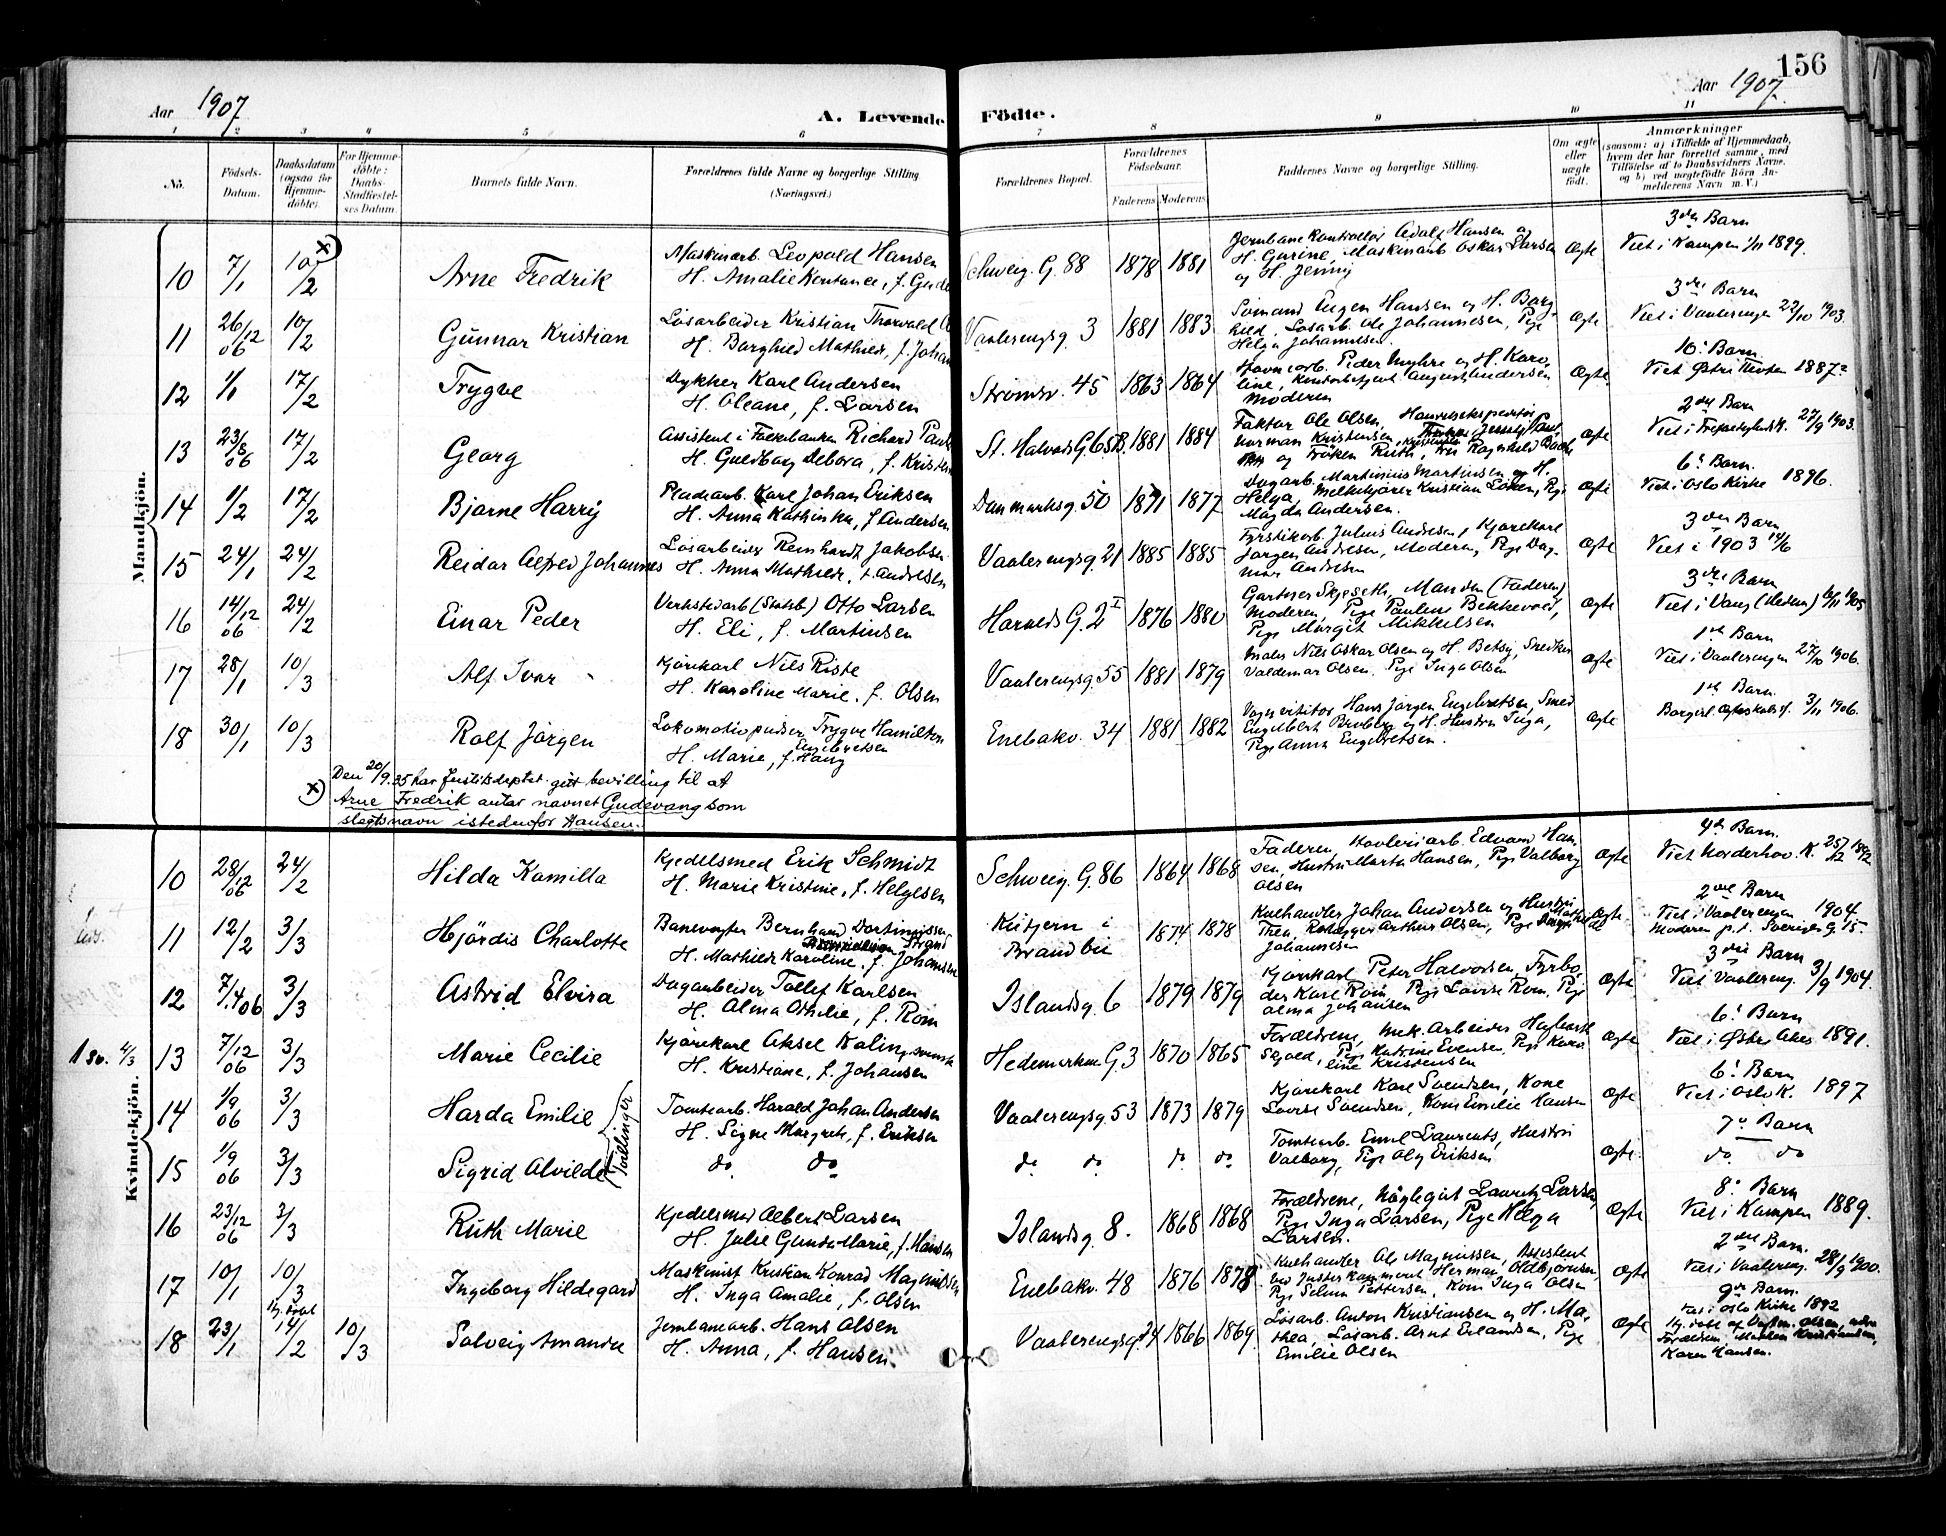 156
Aar 1907
A. Levende Födte.
Aar 1907.
1 2 3 4 5 6 7 8 9 10 11
No.
Födsels-Datum.
Daabsdatum (ogsaa for Hjemmedöbte).
For Hjemmedöbte: Daabs-Stadfæstelses Datum.
Barnets fulde Navn.
Forældrenes fulde Navne og borgerlige Stilling (Næringsvei.)
Forældrenes Bopæl.
Forældrenes Födselsaar.
Faderens Moderens
Faddernes Navne og borgerlige Stilling.
Om ægte eller uægte födt.
Anmærkninger
(saasom: a) i Tilfælde af Hjemmedaab, hvem der har forrettet samme, med Tilföielse af to Daabsvidners Navne. og b) ved uægtefödte Börn Anmelderens Navn m. V.)
Mandkjön.
10 7/1 10/2 x) Arne Fredrik
Maskinarb. Leopold Hansen
H. Amalie Konstance, f. Gude
Schweig. G. 88 1878 1881
Jernbanekontrollør Adolf Hansen og
H. Gurine, Maskinarb Oskar Larsen
og H. Jenny
Ægte
3die Barn
Viet i Kampen 1/11 1899.
11 26/12 06 10/2 Gunnar Kristian
Løsarbeider Kristian Thorvald
H. Borghild Mathilde, f. Johan
Vaalerengsg. 3 1881 1883
Sømand Eugen Hansen og H. Borg-
hild, Løsarb. Ole Johannesen, Pige
Helga Johannesen.
Ægte
3die Barn
Viet i Vaalerengen 22/10 1903.
12 1/1 17/2 Trygve
Dykker Karl Andersen
H. Oleane, f. Larsen
Strømsv. 45 1863 1864
Havnearb. Peder Myhre og H. Karo-
line, Kontorbetjent August Andersen
Moderen
Ægte
10: Barn.
Viet Østre Thoten 1887
13 23/8 06 17/2 Georg
Assistent i Folkebanken Richard
H. Guldborg Debora, f. Kristen
St. Halvards G. 65B. 1881 1884
Faktor Ole Olsen,
Norman Kristensen,
og Frøken Ruth, Frk Ragnhild
Ægte
2det Barn
Viet i Trefoldighedsk. 27/9 1903.
14 1/2 17/2 Bjarne Harry
Pladearb. Karl Johan Eriksen
H. Anna Kathinka, f Andersen
Danmarksg. 50 1871 1877
Dagarb. Martinius Martinsen og H.
Helga, Melkekjører Kristian Løken, Pige
Magda Andersen.
Ægte
6: Barn.
Viet i Oslo Kirke 1896.
15 24/1 24/2 Reidar Alfred Johannes
Løsarbeider Reinhardt Jakobsen
H. Anna Mathilde, f. Andresen
Vaalerengsg. 21 1885 1885
Fyrstikarb. Julius Andresen, Kjørekarl
Jørgen Andresen, Moderen, Pige Dag-
mar Andresen
Ægte
3die Barn
Viet i 1903 14/6
16 14/12 06 24/2 Einar Peder
Verkstedarb (Statsb.) Otto Larsen
H. Eli, f. Martinsen
Haralds G. 2 I 1876 1880
Gartner Skjeseth, Manden (Faderen)
Moderen, Pige Pauline Bekkevold,
Pige Margit Mikkelsen
Ægte
3die Barn
Viet i Vang (Hedem) 1905
17 28/1 10/3 Alf Ivar
Kjørekarl Nils Riste
H. Karoline Marie, f. Olsen
Vaalerengsg. 55 1881 1879
Maler Nils Oskar Olsen og H. Betsy, Snedker
Valdemar Olsen, Pige Inga Olsen
Ægte
1ste Barn
Viet i Vaalerengen 27/10 1906.
18 30/1 10/3 Rolf Jørgen
Lokomotivpudser Trygve Hamilton
Engebretsen
H. Marie, f. Haug
Enebakv. 34 1881 1882
Vognvisitør Hans Jørgen Engebretsen, Smed
Engelbert Broberg og H. Hustru Inga,
Pige Anna Engebretsen.
Ægte
1ste Barn.
Borgerl. Ægteskabsf. 3/11 1906.
x) Den 20/9.35 har Justitsdeptet. gitt bevilling til at
Arne Fredrik antar navnet Gudevang som
slegtsnavn istedenfor Hansen.
Kvindekjön.
10 28/12 06 24/2 Hilda Kamilla
Kjedelsmed Erik Schmidt
H. Marie Kristine, f. Helgesen
Schweig. G. 86 1864 1868
Faderen, Høvleriarb. Edvard Han-
sen, Hustru Marta Hansen, Pige Valborg
Olsen
Ægte
4de Barn.
Viet Norderhov K. 25/12 1892
11 12/2 3/3 Hjördis Charlotte
Banevogter Bernhard
Strand
H. Mathilde Karoline, f. Johansen
Kutjern i
Brandbu 1874 1878
Kulhandler Johan Andersen og Hustru
Thea, Arthur Olsen, Pige
Johannesen
Ægte
2det Barn
Viet i Vaalerengen 1904.
Moderen p. t. Sverigesg. 15.
12 7/4 06 3/3 Astrid Elvira
Dagarbeider Tollef Karlsen
H. Alma Othilie, f. Rom
Islandsg. 6 1879 1879
Kjørekarl Peter Halvorsen, Fyrbø-
der Karl Rom, Pige Lovise Rom, Pige
Alma Johansen
Ægte
3die Barn
Viet Vaalereng. 3/9 1904.
1 sv. 4/3
13 7/12 06 3/3 Marie Cecilie
Kjørekarl Aksel Kaling, svensk
H. Kristiane, f. Johansen
Hedemarkens G. 3 1870 1865
Forældrene, Mek. Arbeider Hagbarth
Sejold, Pige Katrine Evensen, Pige Karo-
line Kristensen
Ægte
6: Barn
Viet i Østre Aker 1891.
14 1/9 06 3/3 Harda Emilie
Tomtearb. Harald Johan Andersen
H. Signe Margrete, f. Eriksen
Tvillinger
Vaalerengsg. 53 1873 1879
Kjørekarl Karl Svendsen, Kone
Lovise Svendsen, Kone Emilie Hansen
Ægte
6: Barn
Viet i Oslo K. 1897
15 1/9 06 3/3 Sigrid Alvilde
do do do do do do
Tomtearb. Emil Laurents, Hustru
Valborg, Pige Olg Eriksen
Ægte.
7de Barn
do do
16 23/12 06 3/3 Ruth Marie
Kjedelsmed Albert Larsen
H. Julie Gunda Marie, f. Hansen
Islandsg. 8. 1868 1868
Forældrene, Lauritz Larsen,
Pige Inga Larsen, Pige Helga
Larsen.
Ægte
8: Barn
Viet i Kampen 1889.
17 10/1 10/3 Ingeborg Hildegard
Maskinist Kristian Konrad Magnussen
H. Inga Amalie, f. Olsen
Enebakv. 48 1876 1878
Kulhandler Ole Magnussen, Assistent
ved Justerkammeret Herman Oldbjørnsen,
Pige Selma Pettersen, Kone Inga Olsen
Ægte
2det Barn.
Viet i Vaalereng. 28/9 1900.
18 23/1 Hj. døbt 14/2 10/3 Solveig Amanda
Jernbanearb. Hans Olsen
H. Anna, f. Hansen.
Vaalerengsg. 24 1866 1869
Løsarb. Anton Kristiansen og H. Ma-
thea, Løsarb. Arnt Erlandsen, Pige
Emilie Olsen
Ægte
9de Barn.
Viet i Oslo Kirke 1892
Hj. døbt af Olsen,
Forældrene, Kristiansen,
Karen Hansen.